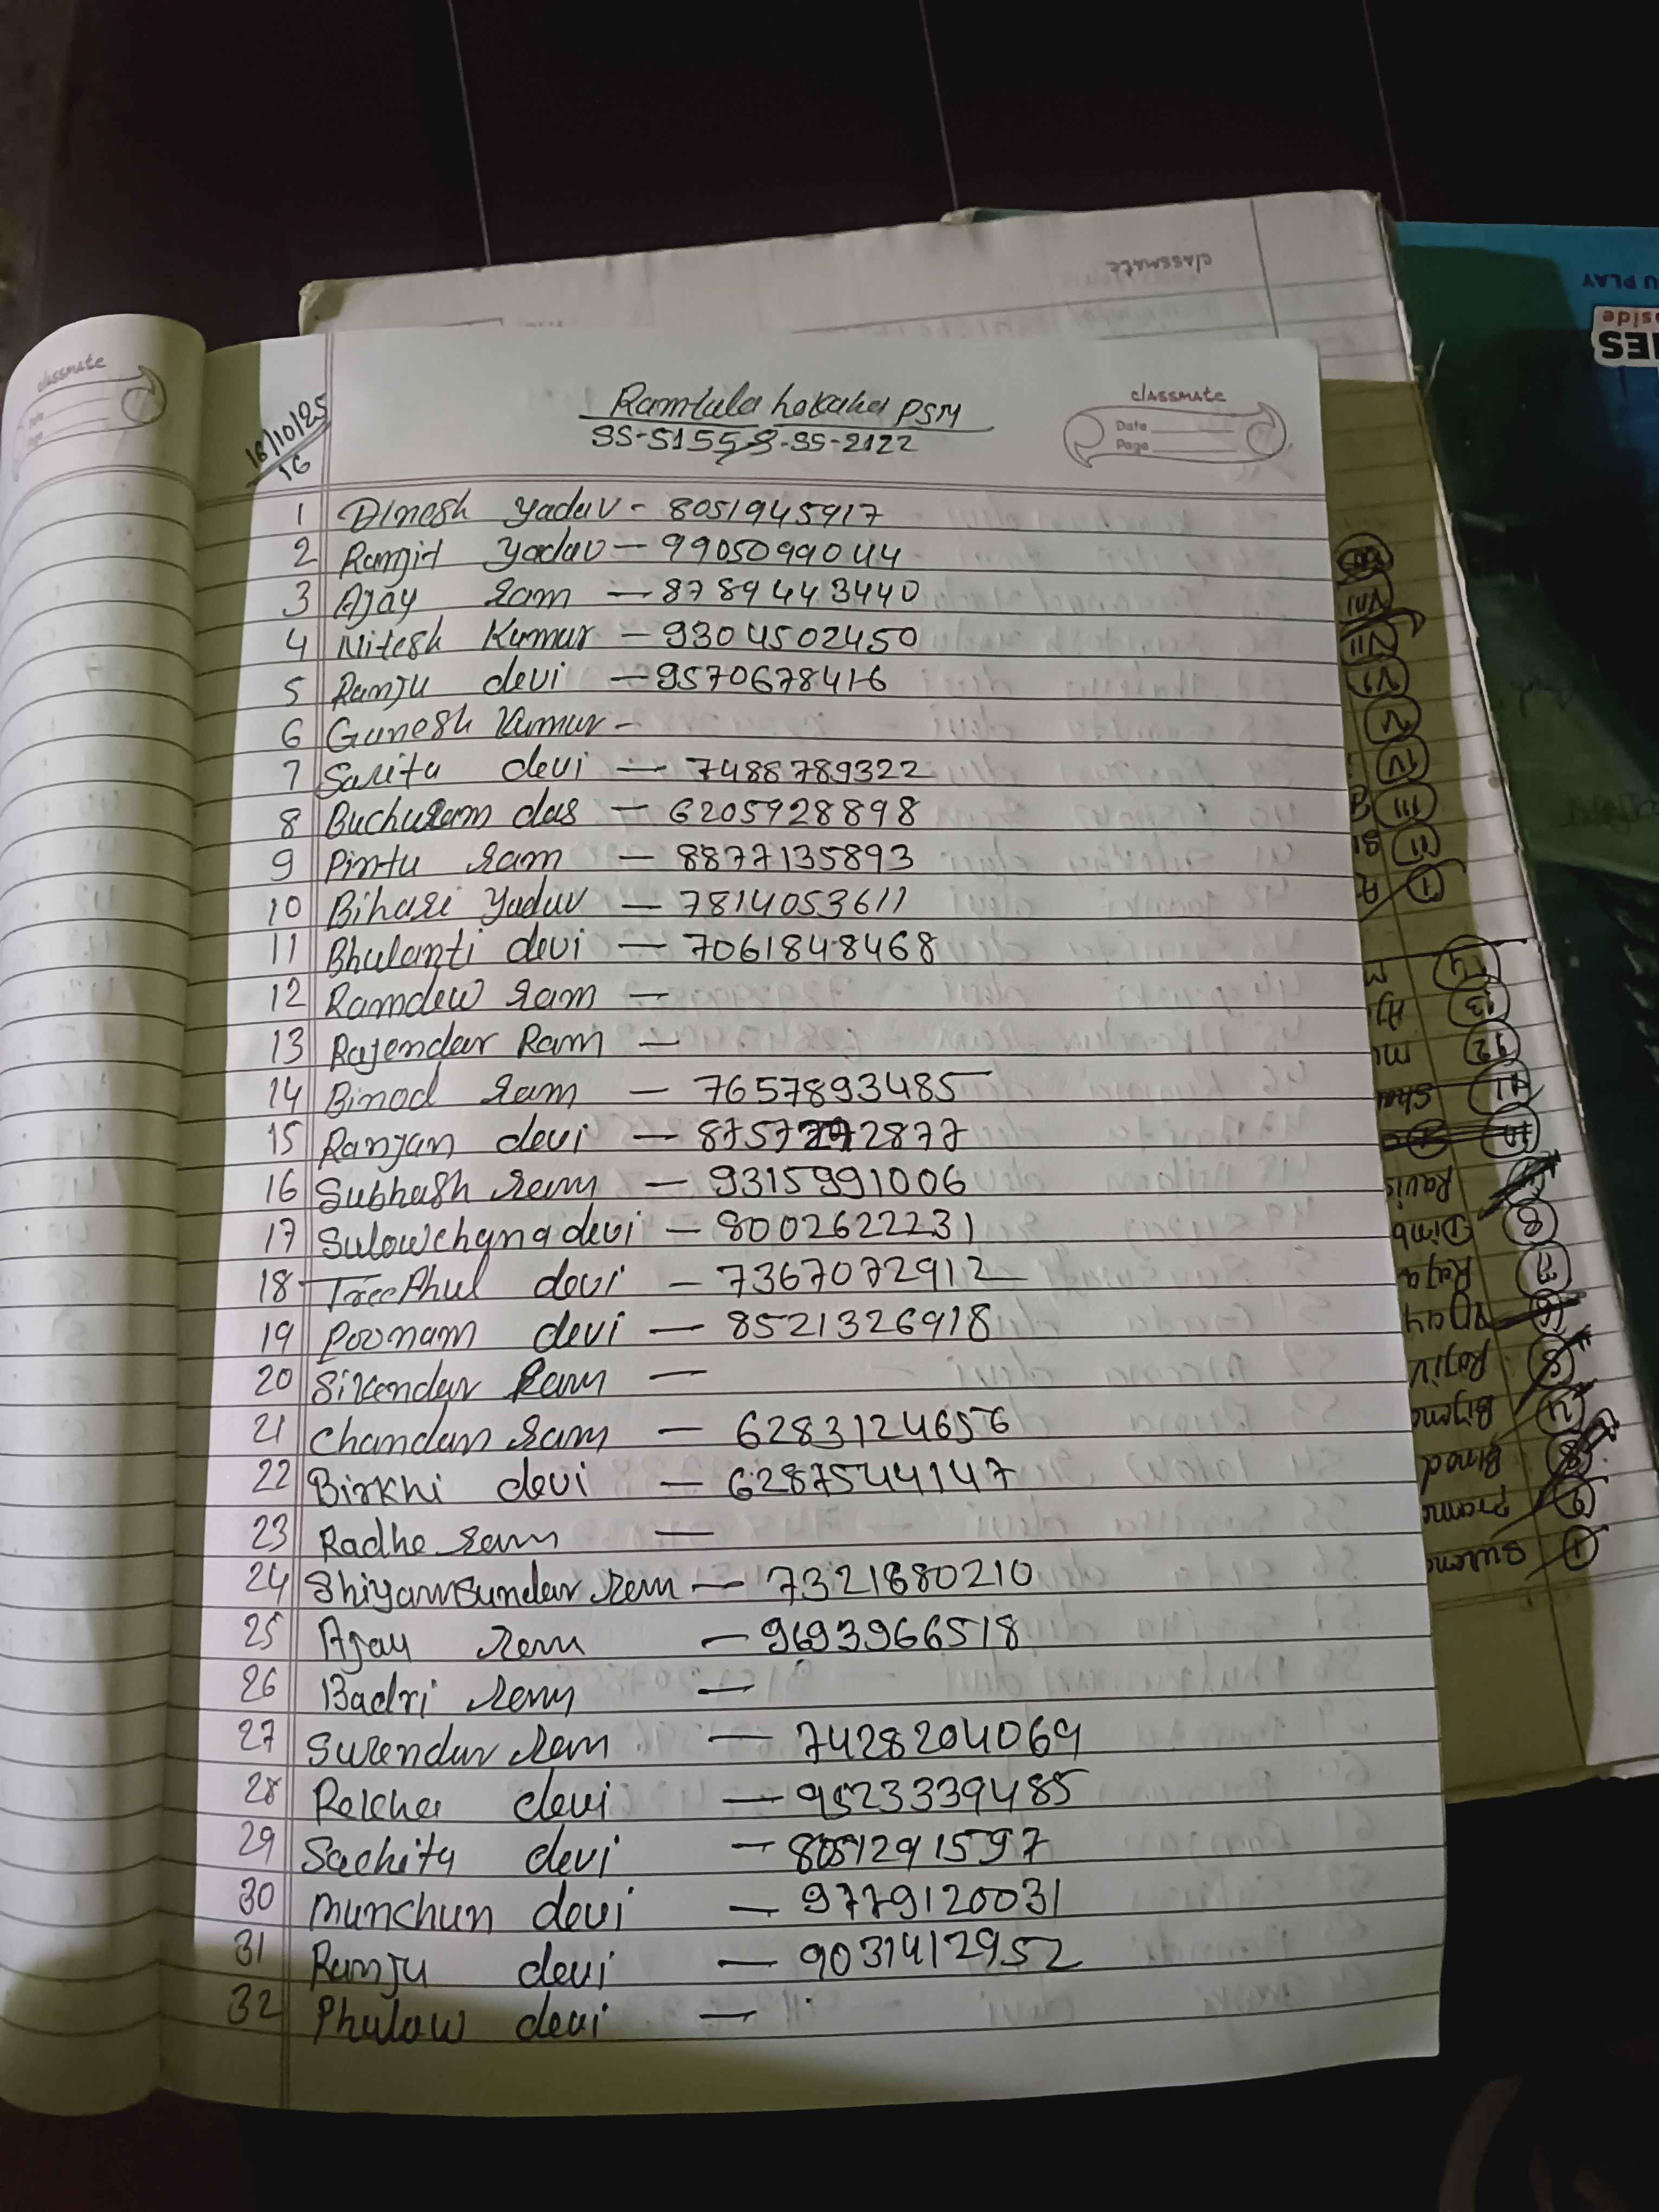 classmate
U PLAY
side
IES
classmate
Date
Page
16/10/25
16
Ramtula PSM
classmate
Date
Page
SS-51558-SS-2122
1 Dinesh Yaduv - 8051945917
2 Ramjit Yadav - 9905099044
3 Ajay Ram - 8789443440
4 Nitesh Kumar - 9304502450
5 Ranju devi - 9570678416
6 Gunesh Kumur -
7 Sarita devi - 7488789322
8 Buchuram das - 6205928898
9 Pintu Ram - 8877135893
10 Bihari Yaduv - 7814053611
11 Bhulanti devi - 7061848468
12 Ramdew Ram -
13 Rajendar Ram -
14 Binod Ram - 7657893485
15 Ranjan devi -
16 Subhash Ram - 9315991006
17 Sulowchana devi - 8002622231
18 TreePhul devi - 7367072912
19 Poonam devi - 8521326918
20 Sikendar Ram -
21 Chandan Ram - 6283124656
22 Birkhi devi - 6287544147
23 Radhe Ram -
24 Shiyamsundar Ram - 7321880210
25 Ajay Ram - 9693966518
26 Badri Ram -
27 Surendur Ram - 7428204069
28 devi - 9523339485
29 Sachita devi - 8051291597
30 Munchun devi - 9779120031
31 Ranju devi - 9031412952
32 Phulaw devi -